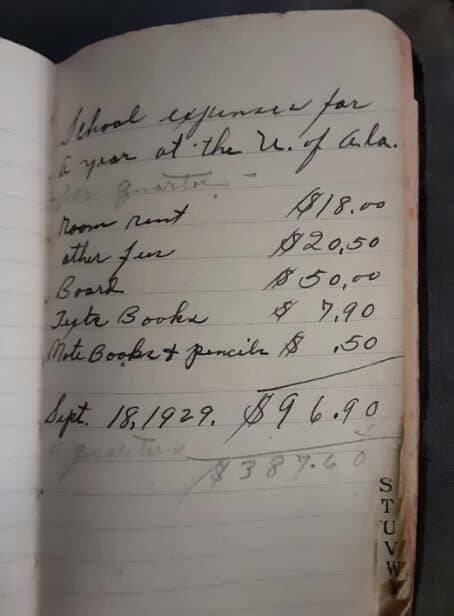 School expenses for
a year at the U. of Ala.
per quarter -
Room rent $18.00
other fees $20.50
Board $50.00
Texts Books $ 7.90
Note Books & pencils $ .50
Sept. 18, 1929. $96.90
quarters
$387.60
S
T
U
V
W